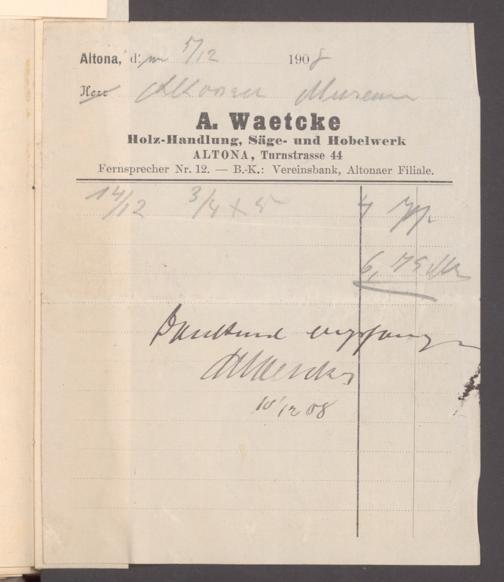 Altona, den 5/12 1908
Herr Altonaer Museum
A. Waetcke
Holz-Handlung, Säge- und Hobelwerk
ALTONA, Turnstrasse 44
Fernsprecher Nr. 12. — B.-K.: Vereinsbank, Altonaer Filiale.
14/12 3/4 × 5
6,75 Mk
Dankend empfangen
A Waetcke
10/12 08